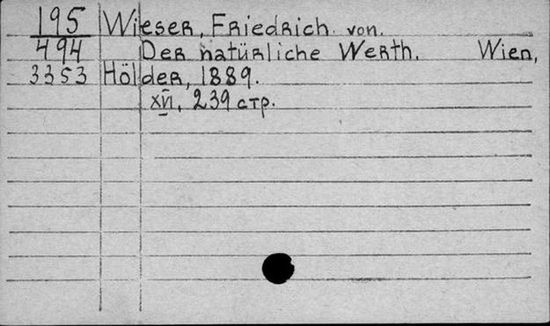 195 Wieser, Friedrich von.
494 Der natürliche Werth. Wien,
3353 Hölder, 1889.
XII, 239 стр.